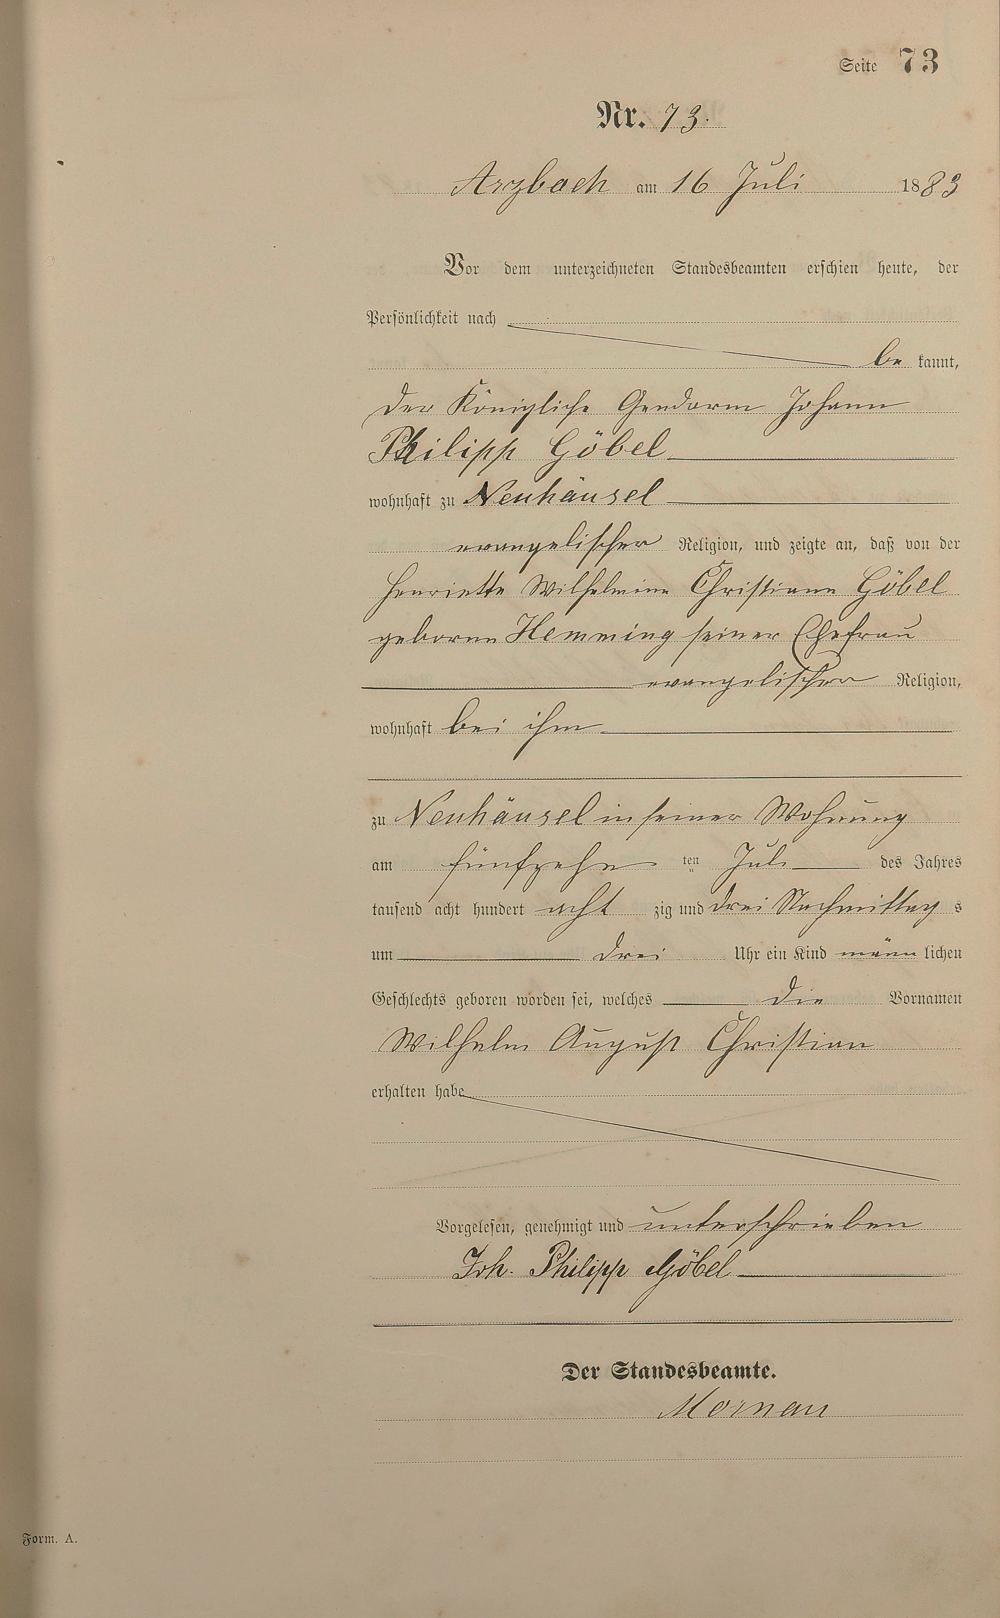 Seite 73
Nr. 73.
Arzbach am 16 Juli 1883
Vor dem unterzeichneten Standesbeamten erschien heute, der
Persönlichkeit nach
be kannt,
der Königliche Gendarm Johann
Philipp Göbel
wohnhaft zu Neuhäusel
evangelischer Religion, und zeigte an, daß von der
Henriette Wilhelmine Christiane Göbel
geborene Hemming seiner Ehefrau
evangelischer Religion,
wohnhaft bei ihm
zu Neuhäusel in seiner Wohnung
am fünfzehn ten Juli des Jahres
tausend acht hundert acht zig und drei Nachmittag s
um drei Uhr ein Kind männ lichen
Geschlechts geboren worden sei, welches die Vornamen
Wilhelm August Christian
erhalten habe
Vorgelesen, genehmigt und unterschrieben
Joh. Philipp Göbel
Der Standesbeamte.
Form. A.